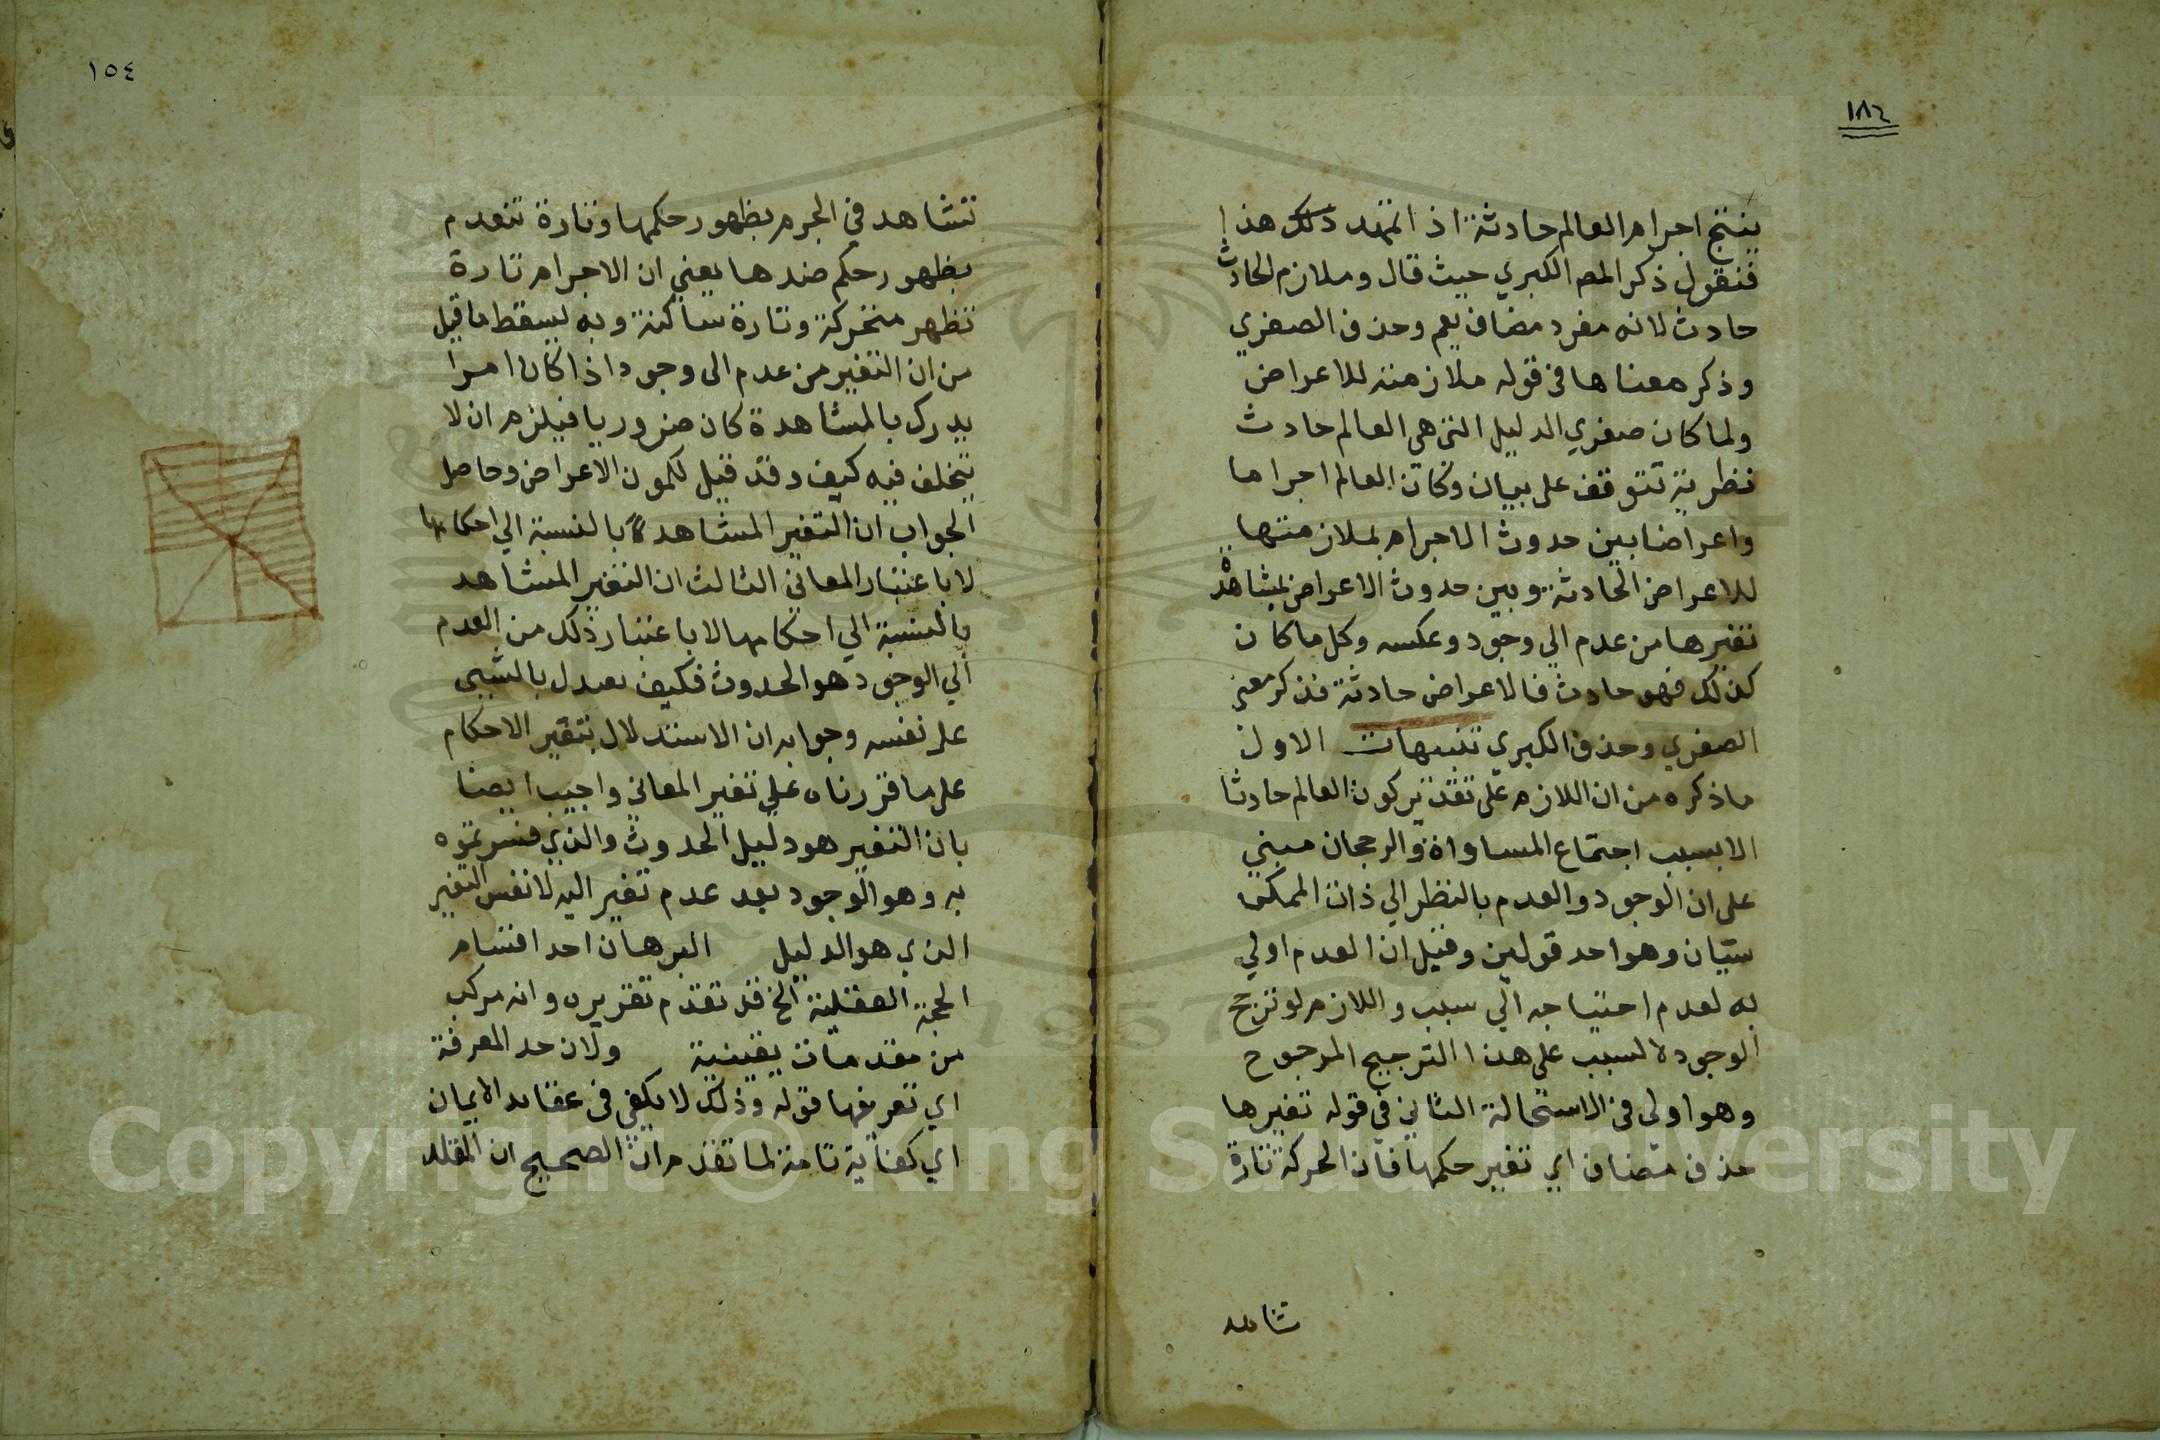 ١٨٤
ينتج اجرام العالم حادثة اذ اتمهد ذلك هذا
فنقول ذكر المص الكبري حيث قال وملازم الحادث
حادث لانه مفرد مضاف يعم وحذف الصغري
وذكر معناها في قوله ملازمته للاعراض
ولما كان صغري الدليل التي هي العالم حادث
نظرية تتوقف على بيان وكان العالم اجراما
واعراضا بين حدوث الاجرام بملازمتها
للاعراض الحادثة وبين حدوث الاعراض بمشاهدة
تغيرها من عدم الي وجود وعكسه وكل ما كان
كذلك فهو حادث فالاعراض حادثة فذكر معني
الصغري وحذف الكبري تنبيهات الاول
ماذكره من ان اللازم على تقدير كون العالم حادثا
الا بسبب اجتماع المساواة والرجحان مبني
على ان الوجود والعدم بالنظر الي ذات الممكن
سيان وهو احد قولين وقيل ان العدم اولي
به لعدم احتياجه الي سبب واللازم لو ترجح
الوجود لا لسبب على هذا الترجيح المرجوح
وهو اولى في الاستحالة الثاني في قوله تغيرها
حذف مضاف اي تغير حكمها فان الحركة تارة
تشاهد
١٥٤
تتشاهد في الجرم بظهور حكمها وتارة تنعدم
بظهور حكم ضدها يعني ان الاجرام تارة
تظهر متحركة وتارة ساكنة وبه يسقط ما قيل
من ان التغير من عدم الى وجود اذا كان امرا
يدرك بالمشاهدة كان ضروريا فيلزم ان لا
يتخلف فيه كيف وقد قيل بكمون الاعراض وحاصل
الجواب ان التغير المشاهد بالنسبة الي احكامها
لا باعتبار المعاني الثالث ان التغير المشاهد
بالنسبة الي احكامها لا باعتبار ذلك من العدم
الي الوجود هو الحدوث فكيف يعدل بالشيى
على نفسه وجوابه ان الاستدلال بتغير الاحكام
على ما قررناه علي تغير المعاني واجيب ايضا
بان التغير هو دليل الحدوث والذي فسرتموه
به وهو الوجود بعد عدم تغير اليه لا نفس التغير
الذي هو الدليل البرهان احد اقسام
الحجة العقلية الخ قد تقدم تقريره وانه مركب
من مقدمات يقينية ولان حد المعرفة
اي تعريفها قوله وذلك لا يكفي في عقايد الايمان
اي كفاية تامة لما تقدم ان الصحيح ان المقلد
Copyright © King Saud University
1957